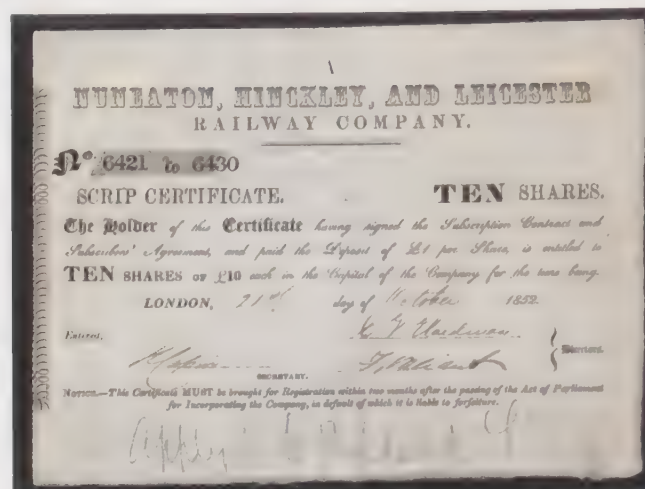 NUNEATON, HINCKLEY, AND LEICESTER
RAILWAY COMPANY.
No. 6421 to 6430
SCRIP CERTIFICATE. TEN SHARES.
The Holder of this Certificate having signed the Subscription Contract and
Subscribers' Agreement, and paid the Deposit of £1 per Share, is entitled to
TEN SHARES OF £10 each in the Capital of the Company for the time being.
LONDON, 21st day of October 1852.
Entered,
Directors.
SECRETARY.
NOTICE.—This Certificate MUST be brought for Registration within two months after the passing of the Act of Parliament
for Incorporating the Company, in default of which it is liable to forfeiture.